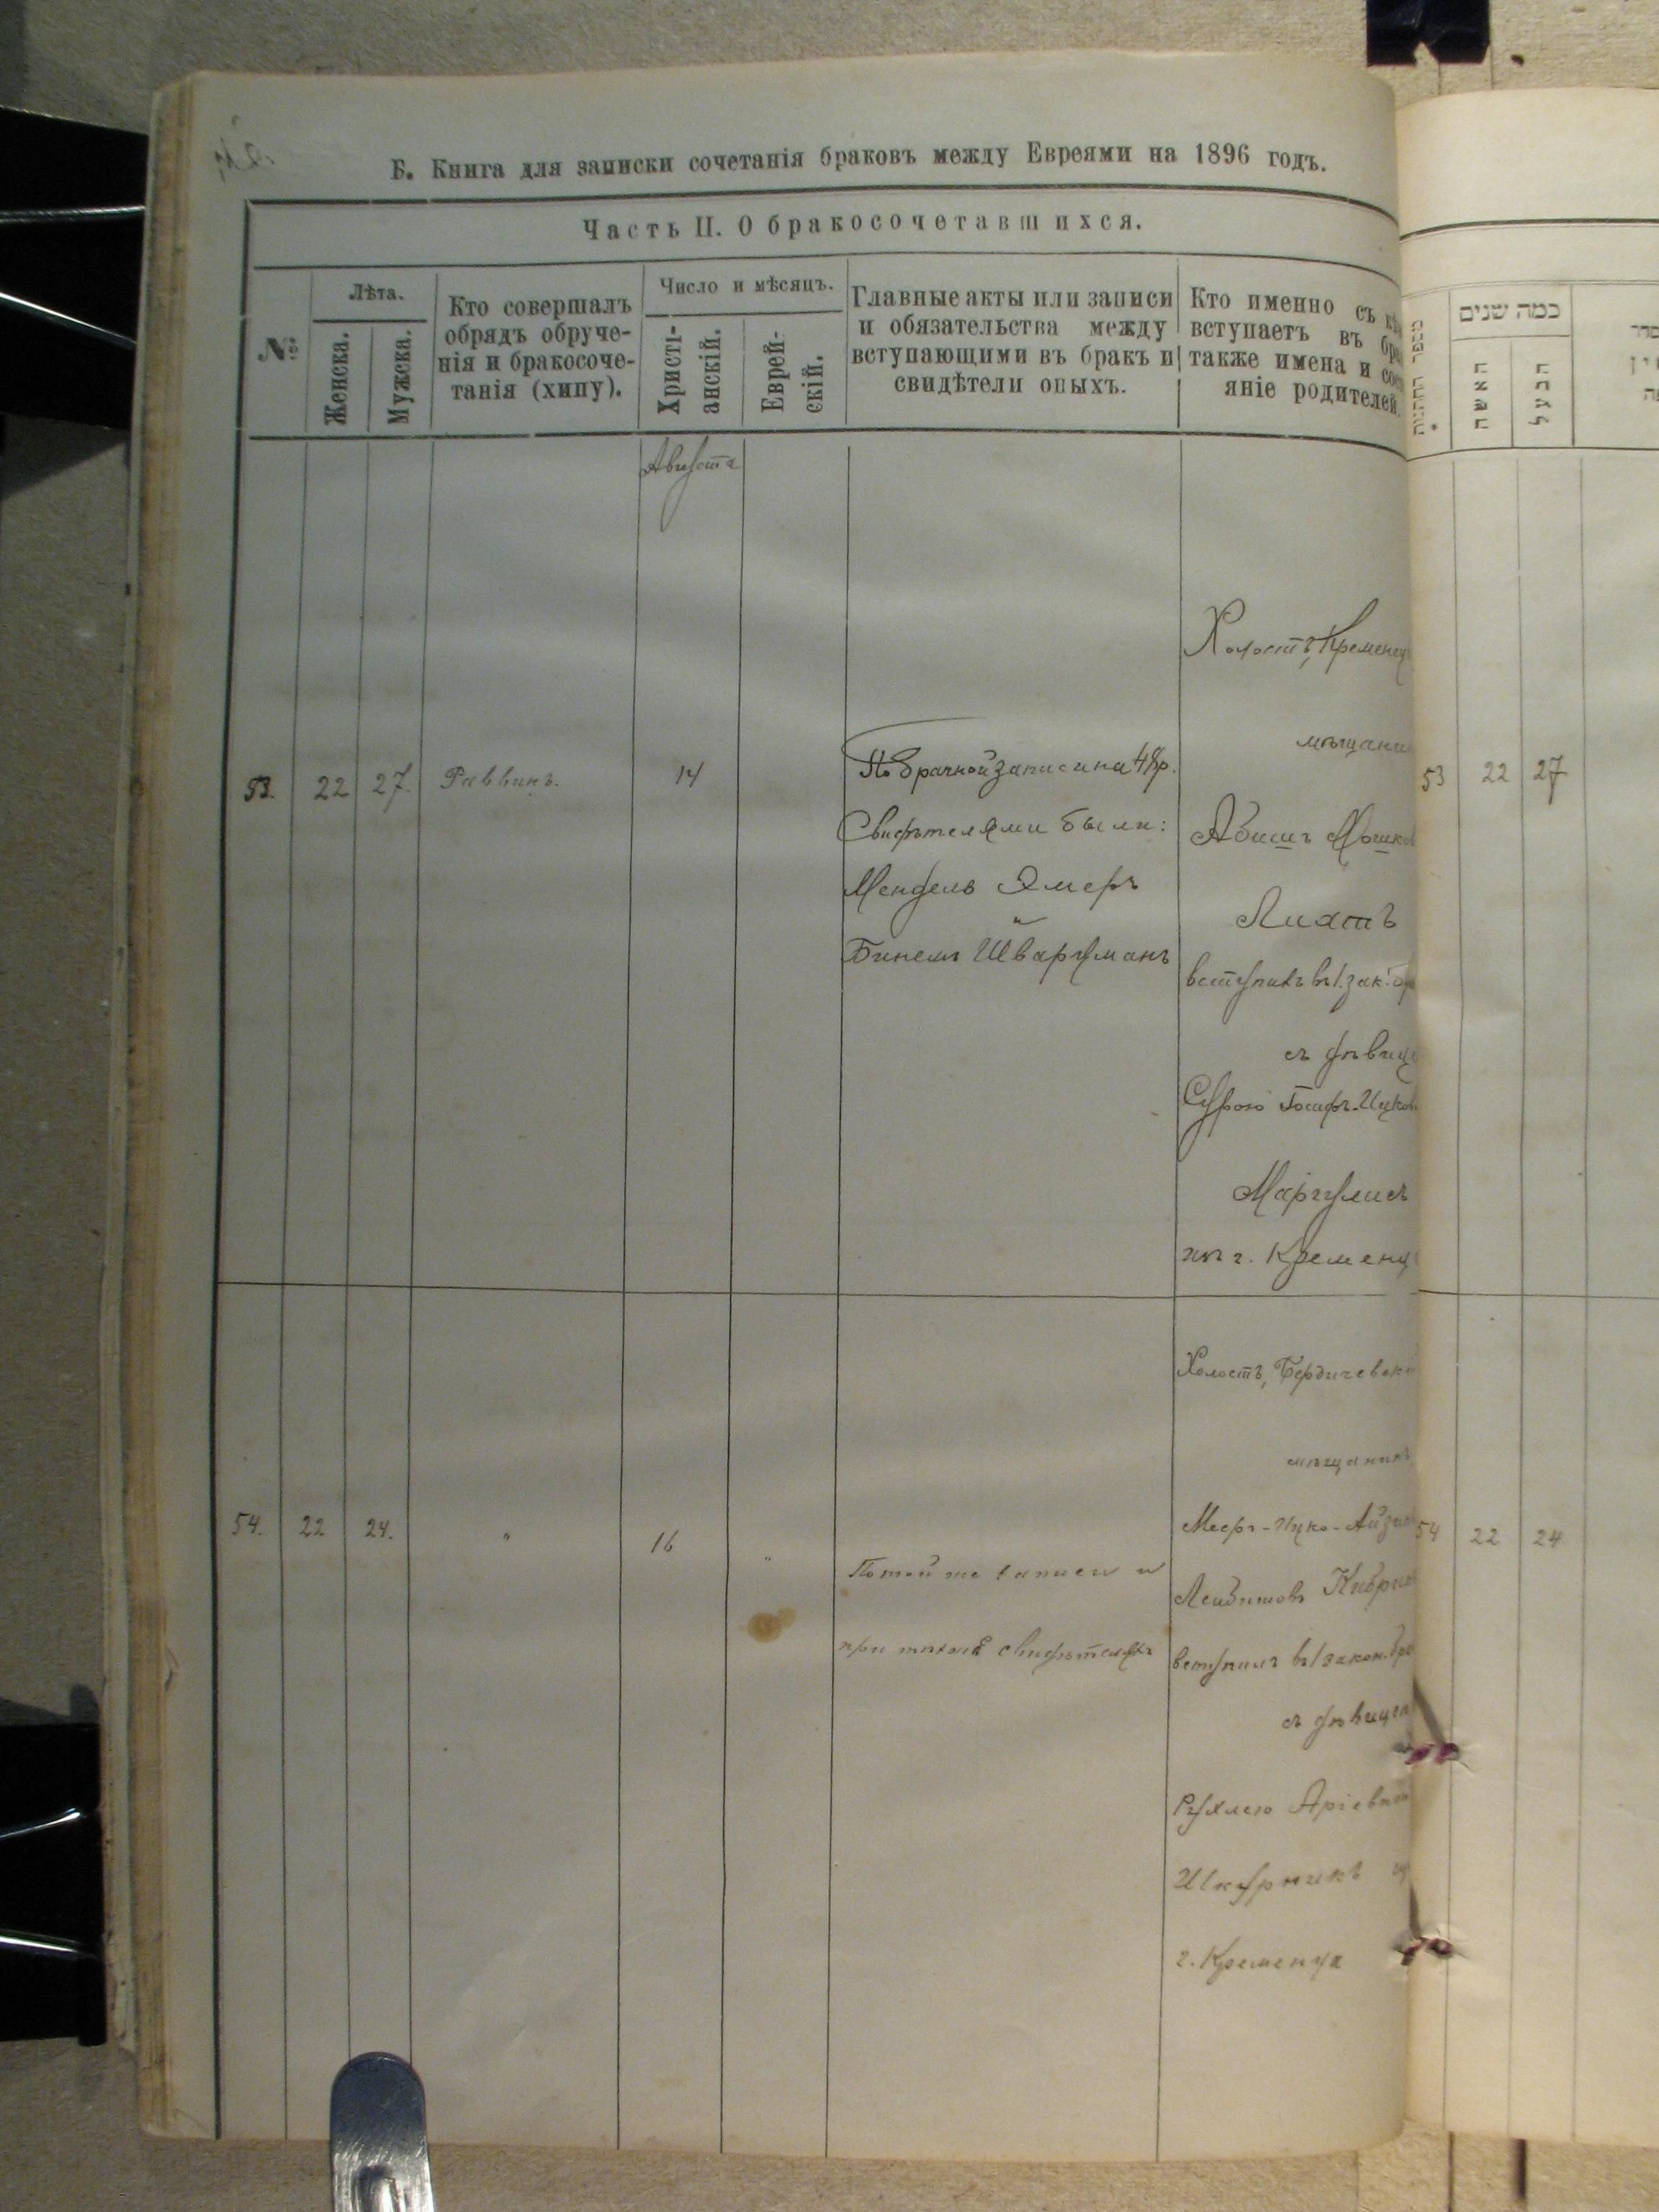 Б. Книга для записки сочетанія браковъ между Евреями на 1896 годъ.
Часть II. О бракосочетавшихся.
№
Лѣта.
Женска.
Мужска.
Кто совершалъ
обрядъ обруче-
нія и бракосоче-
танія (хипу).
Число и мѣсяцъ.
Христі-
анскій.
Еврей-
скій.
Главные акты или записи
и обязательства между
вступающими въ бракъ и
свидѣтели оныхъ.
Кто именно съ
вступаетъ въ
также имена и
яніе родителей
כמה שנים
האשה
הבעל
Августа
53. 22 27. Раввинъ. 14
По брачной записи на 48 р.
Свидѣтелями были:
Мендель Эмеръ
и
Бинемъ Шварцманъ
Холостъ, Кременец
мѣщани
Абишъ Мошков
Лихтъ
вступилъ въ 1. зак. бр
съ дѣвице
Сурою Іосифъ-Ицков
Маргулисъ
изъ г. Кременц
53 22 27
54. 22 24. " 16 "
По той же записи и
при тѣхже свидѣтеляхъ
Холостъ, Бердичевск
мѣщанинъ
Мееръ-Ицко-Айзи
Лейбишовъ Кибри
вступилъ въ 1 закон. бра
съ дѣвице
Рухлею Аріевн
Шкурникъ из
г. Кременца
54 22 24